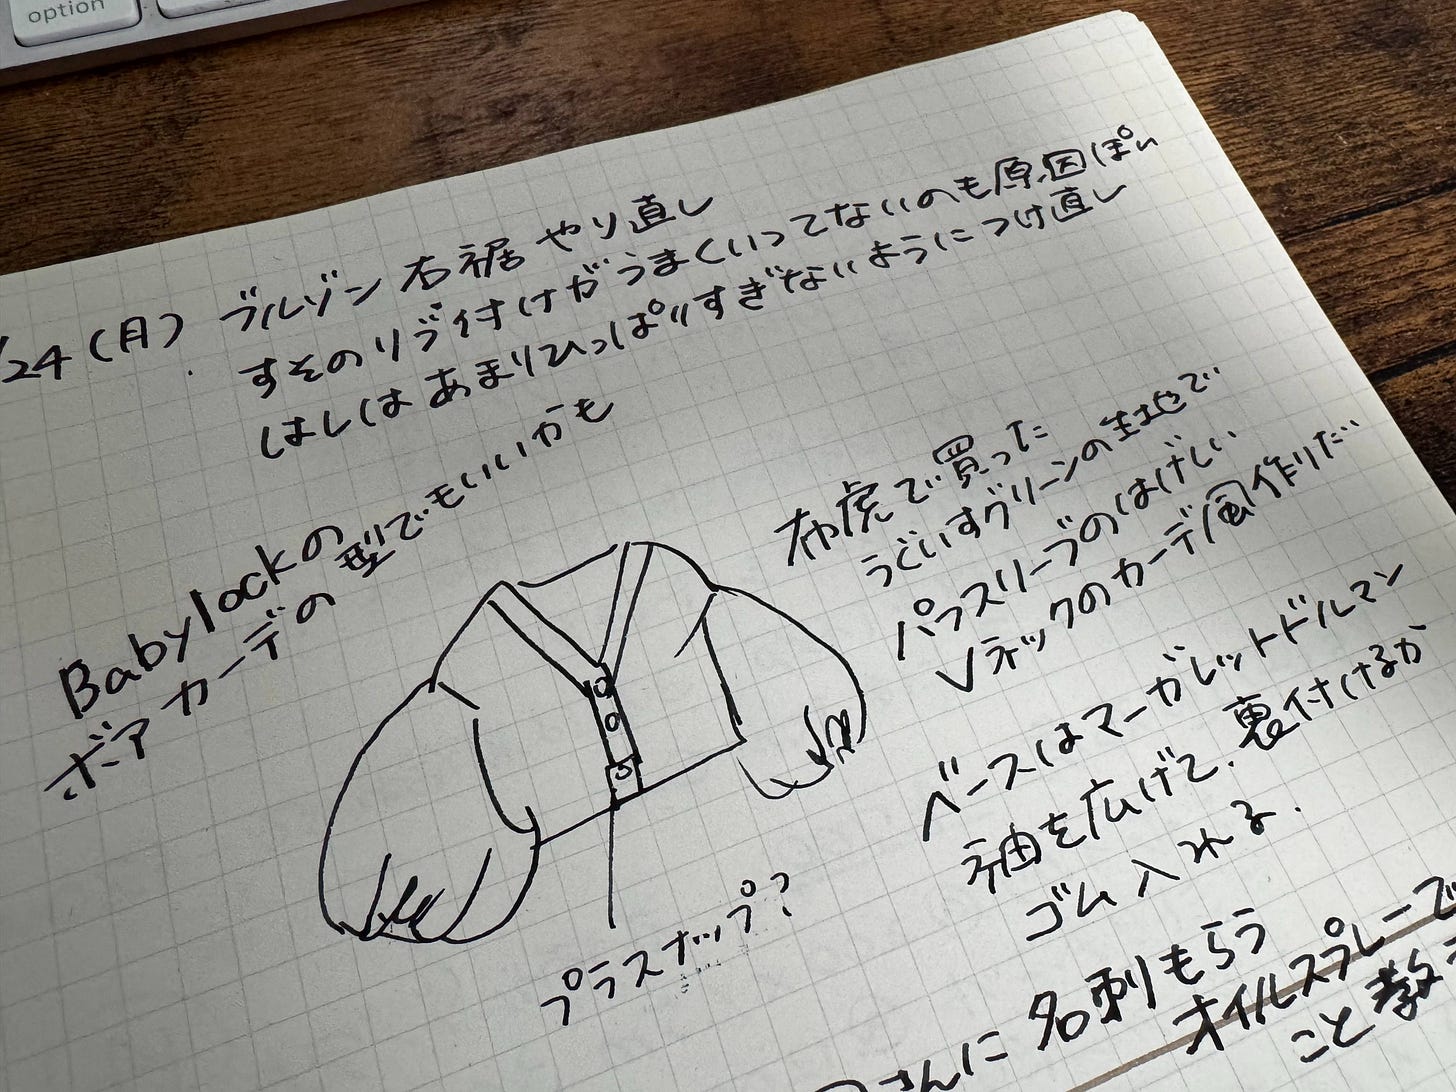 option
/24(月) ブルゾン右裾やり直し
すそのリブ付けがうまくいってないのも原因ぽい
はしはあまりひっぱりすぎないようにつけ直し
Babylockの
ボアカーデの型でもいいかも
布虎で買った
うぐいすグリーンの生地で
パフスリーブのはげしい
Vネックのカーデ風作りだい
ベースはマーガレットドルマン
袖を広げて、裏付けるか
ゴム入れる.
プラスナップ?
さんに名刺もらう
オイルスプレーで
こと教